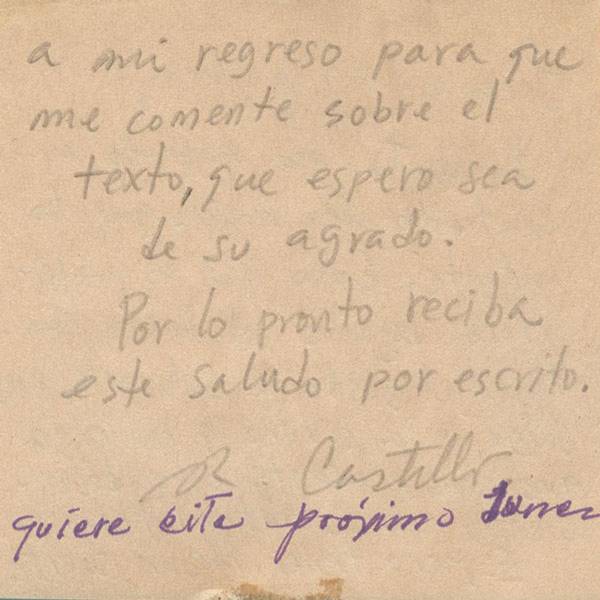 a mi regreso para que
me comente sobre el
texto, que espero sea
de su agrado.
Por lo pronto reciba
este saludo por escrito.
R. Castillo
quiere cita próximo lunes